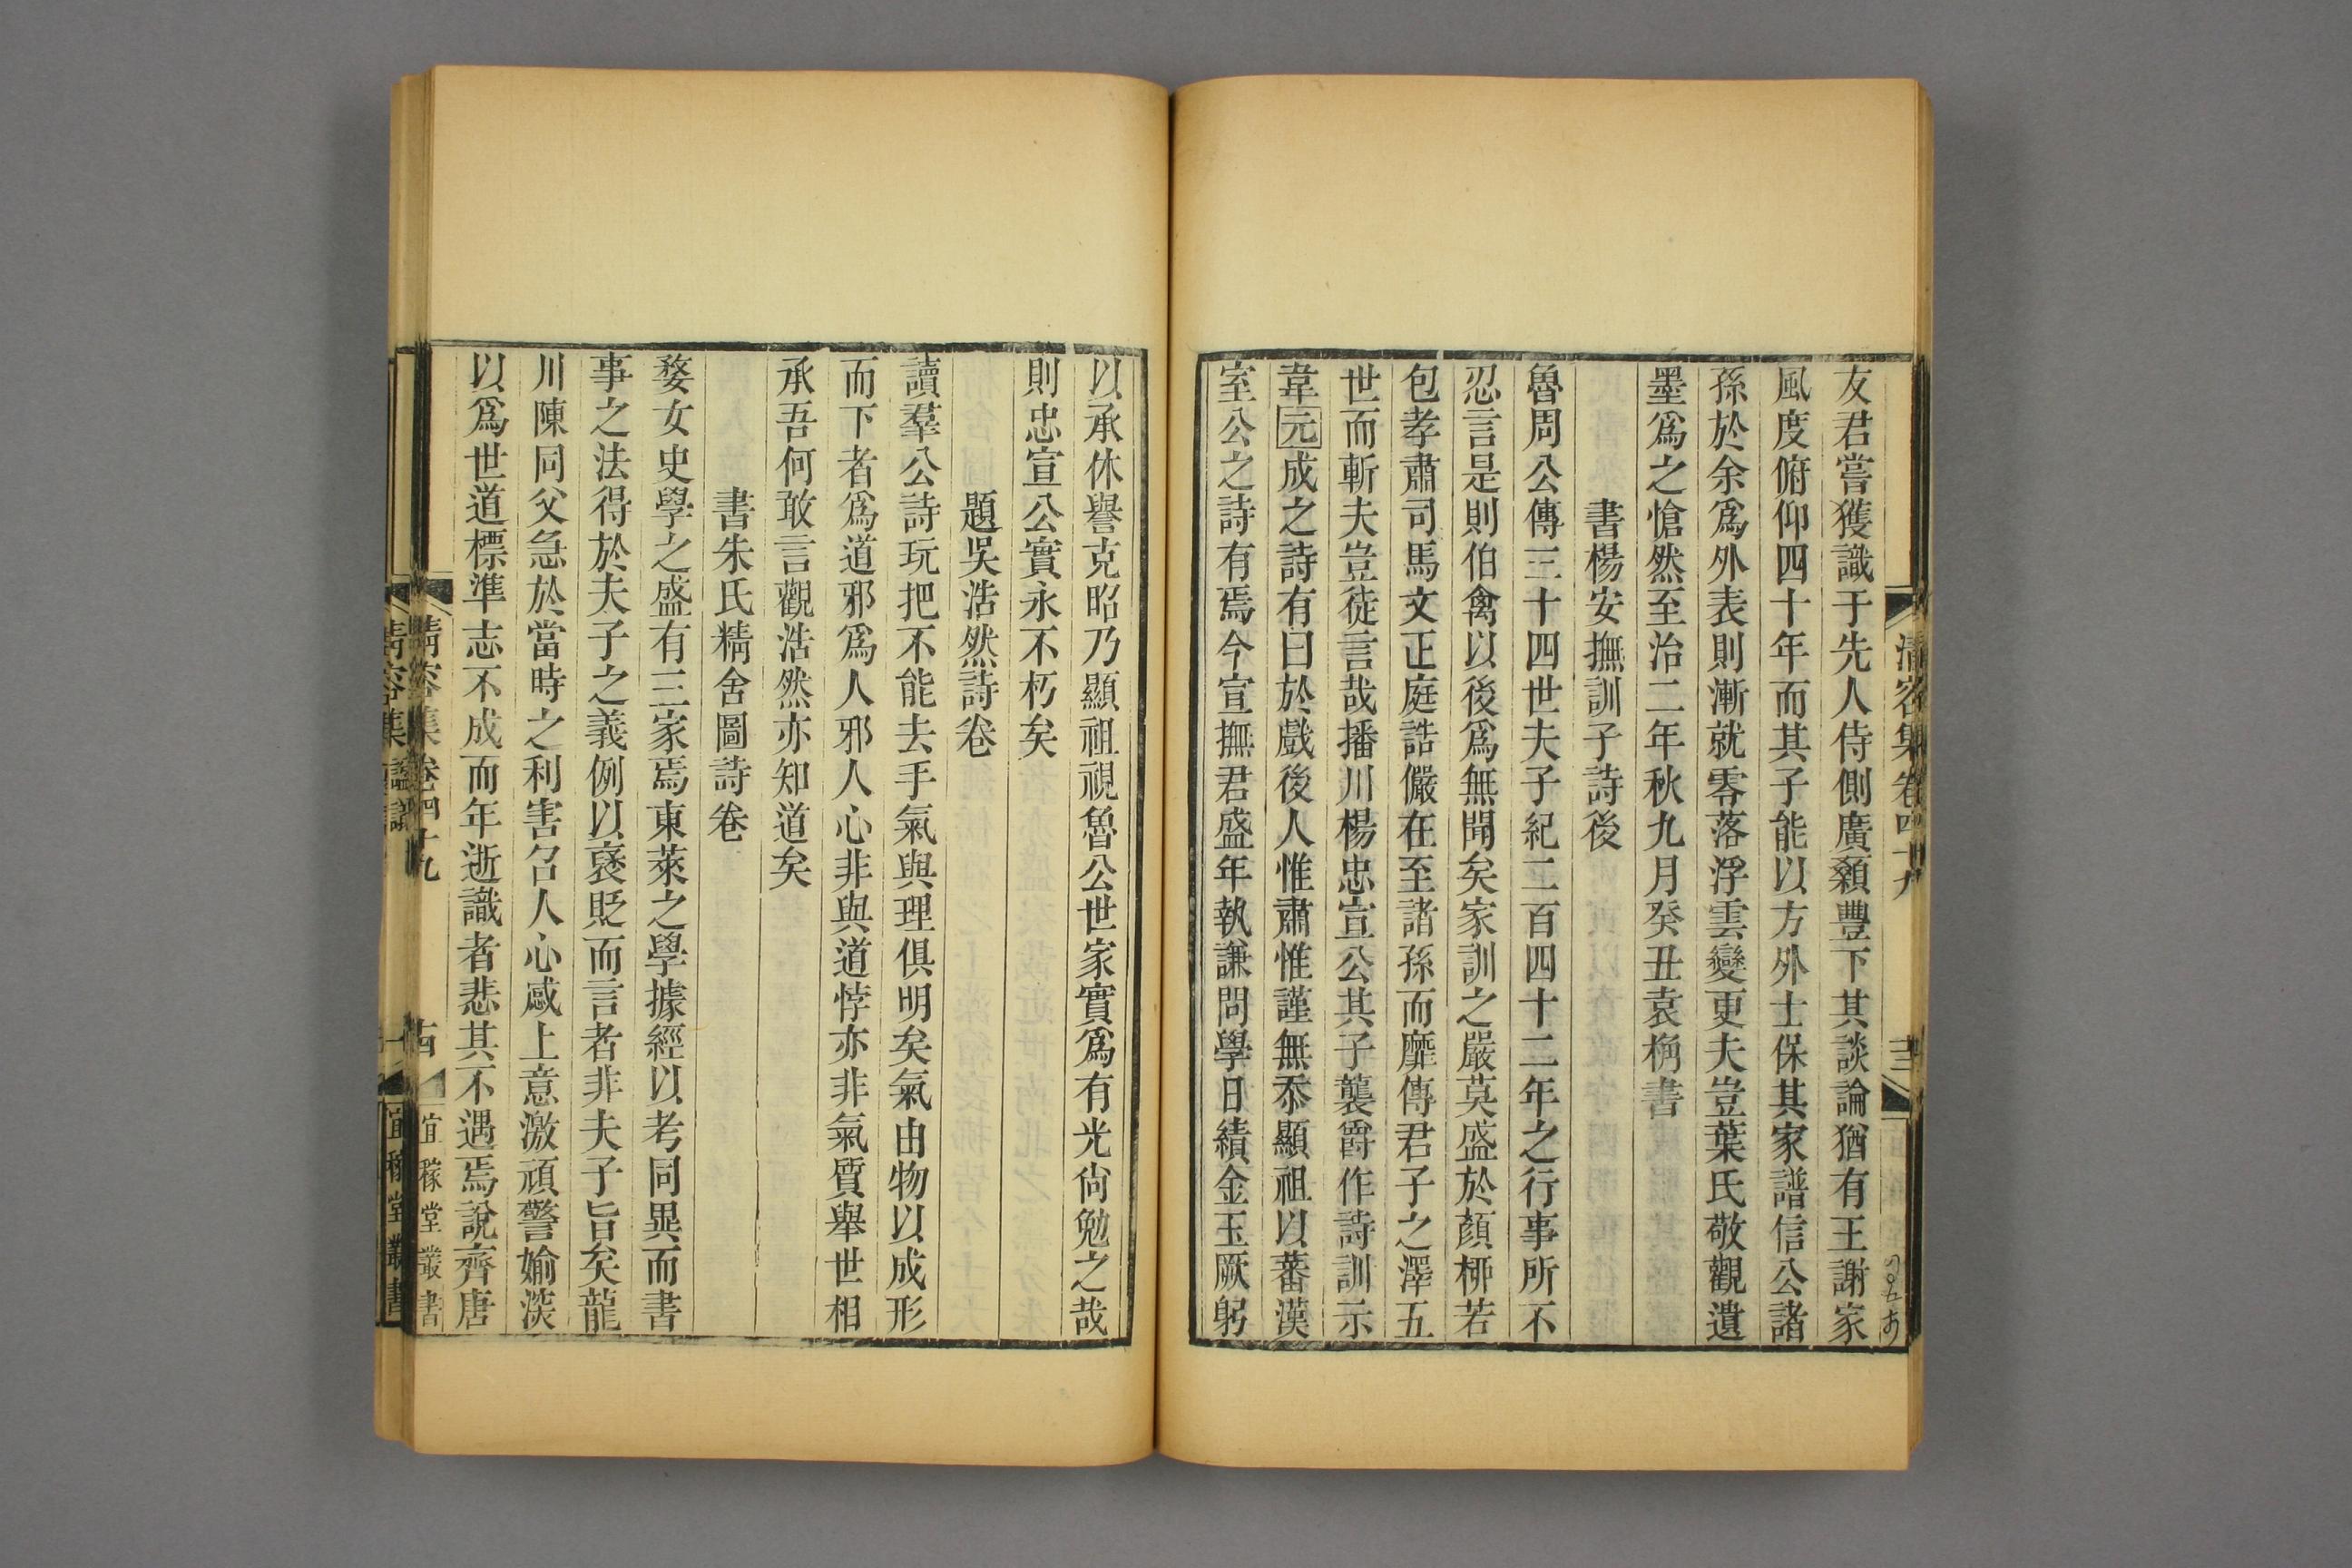 清容集卷四十九
十三
友君嘗獲識于先人侍側廣顙豐下其談論猶有王謝家
風度俯仰四十年而其子能以方外士保其家譜信公諸
孫於余爲外表則漸就零落浮雲變更夫豈葉氏敬觀遺
墨爲之愴然至治二年秋九月癸丑袁桷書
書楊安撫訓子詩後
魯周公傳三十四世夫子紀二百四十二年之行事所不
忍言是則伯禽以後爲無聞矣家訓之嚴莫盛於顏栁若
包孝肅司馬文正庭誥儼在至諸孫而靡傳君子之澤五
世而斬夫豈徒言哉播川楊忠宣公其子襲爵作詩訓示
韋元成之詩有曰於戲後人惟肅惟謹無忝顯祖以蕃漢
室公之詩有焉今宣撫君盛年執謙問學日績金玉厥躬
以承休譽克昭乃顯祖視魯公世家實爲有光尙勉之哉
則忠宣公實永不朽矣
題吳浩然詩卷
讀羣公詩玩把不能去手氣與理俱明矣氣由物以成形
而下者爲道邪爲人邪人心非與道悖亦非氣質舉世相
承吾何敢言觀浩然亦知道矣
書朱氏精舍圖詩卷
婺女史學之盛有三家焉東萊之學據經以考同異而書
事之法得於夫子之義例以襃貶而言者非夫子旨矣龍
川陳同父急於當時之利害召人心感上意激頑警媮淡
以爲世道標準志不成而年逝識者悲其不遇焉說齊唐
清容集卷四十九
古
宜稼堂叢書
清容集
宜稼堂叢書